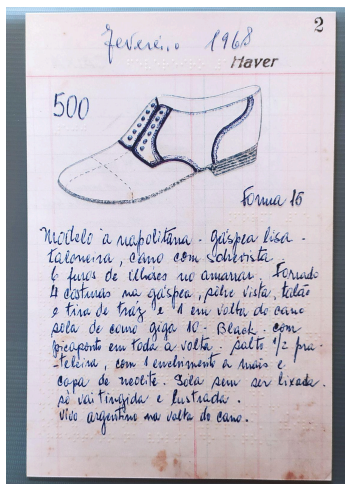 2
Fevereiro 1968
Haver
500
Forma 16
Modelo à napolitana. gáspea lisa.
taloneira, cano com sobrevista.
6 furos de ilhóses no amarrar. Forrado
4 costuras na gáspea, sobre vista, talão
e tira de traz, e 1 em volta do cano
sola de couro giga 10. Black. com
picaponto em toda a volta. salto 1/2 pra-
-teleira, com 1 enchimento a mais e
capa de neolite. Sola sem ser lixada.
só vai tingida e lustrada.
vivo argentino na volta do cano.